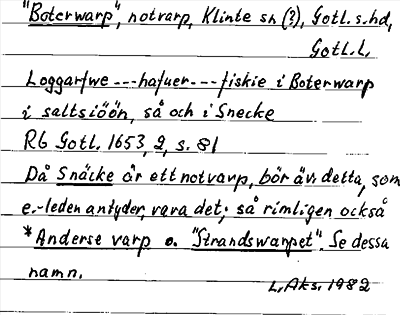 "Boterwarp", notvarp, Klinte sn (?), Gotl. s. hd,
Gotl. l.
Loggarfwe --- hafuer --- fiskie i Boterwarp
i saltsiöön, så och i Snecke
RG Gotl. 1653, 2, s. 81
Då Snäcke är ett notvarp, bör äv. detta, som
e.-leden antyder, vara det; så rimligen också
*Anderse varp o. "Strandswarpet". Se dessa
namn.
L. Aks. 1982